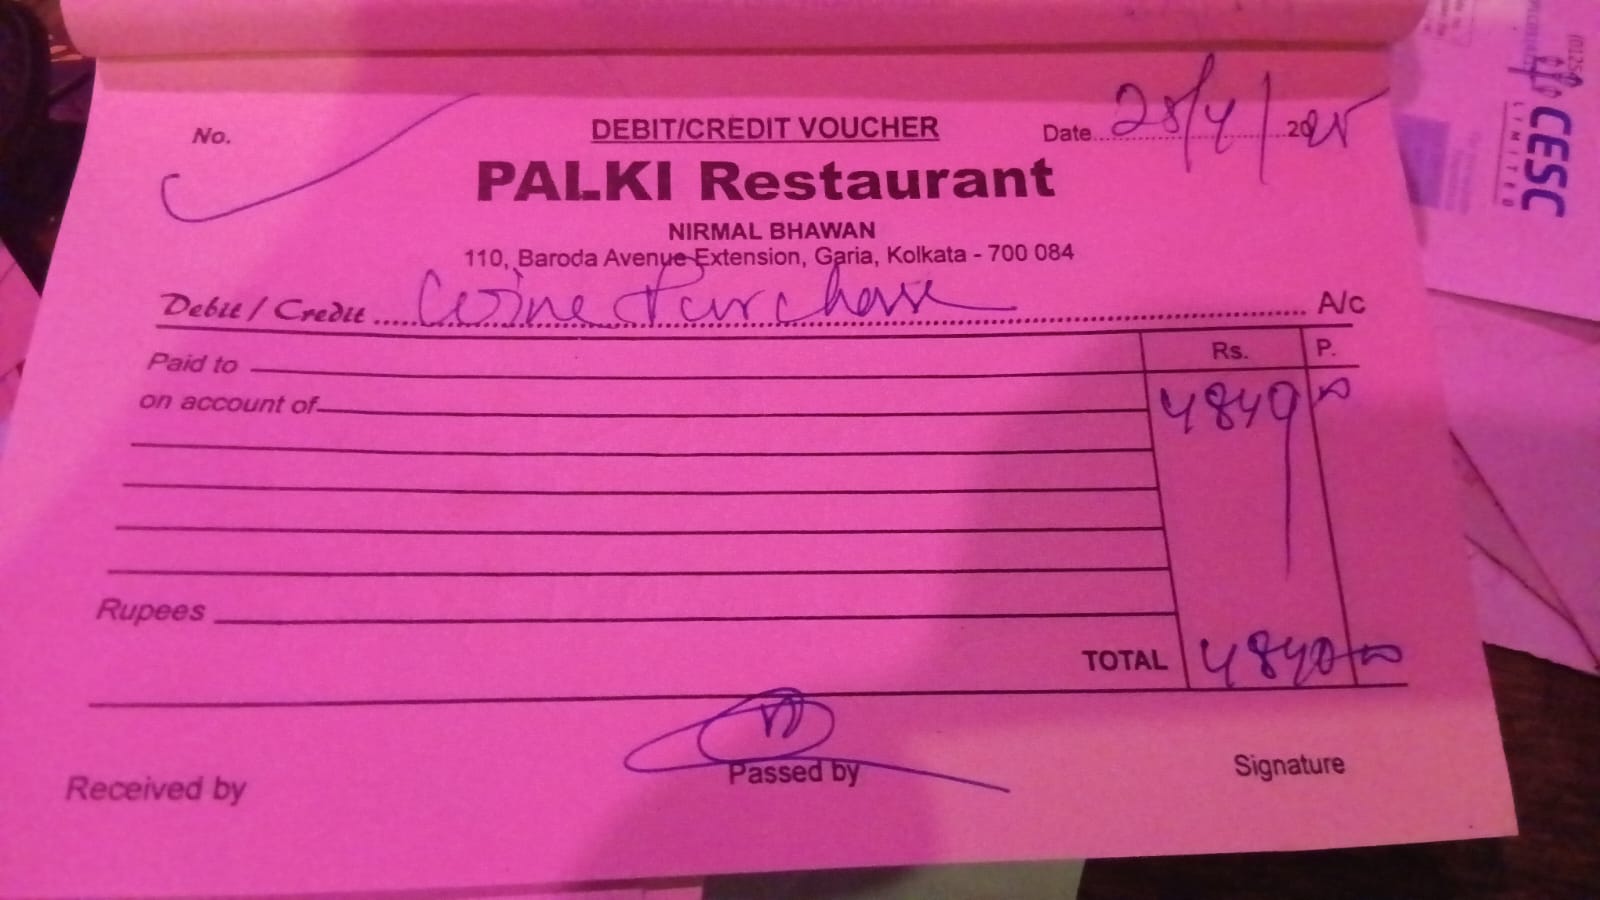 No.
DEBIT/CREDIT VOUCHER
Date 28/4/2025
PALKI Restaurant
NIRMAL BHAWAN
110, Baroda Avenue Extension, Garia, Kolkata - 700 084
Debit / Credit Wine Purchase A/c
Rs. P.
Paid to
on account of
4840 00
Rupees
TOTAL 4840 00
Passed by
Signature
Received by
CESC
LIMITED